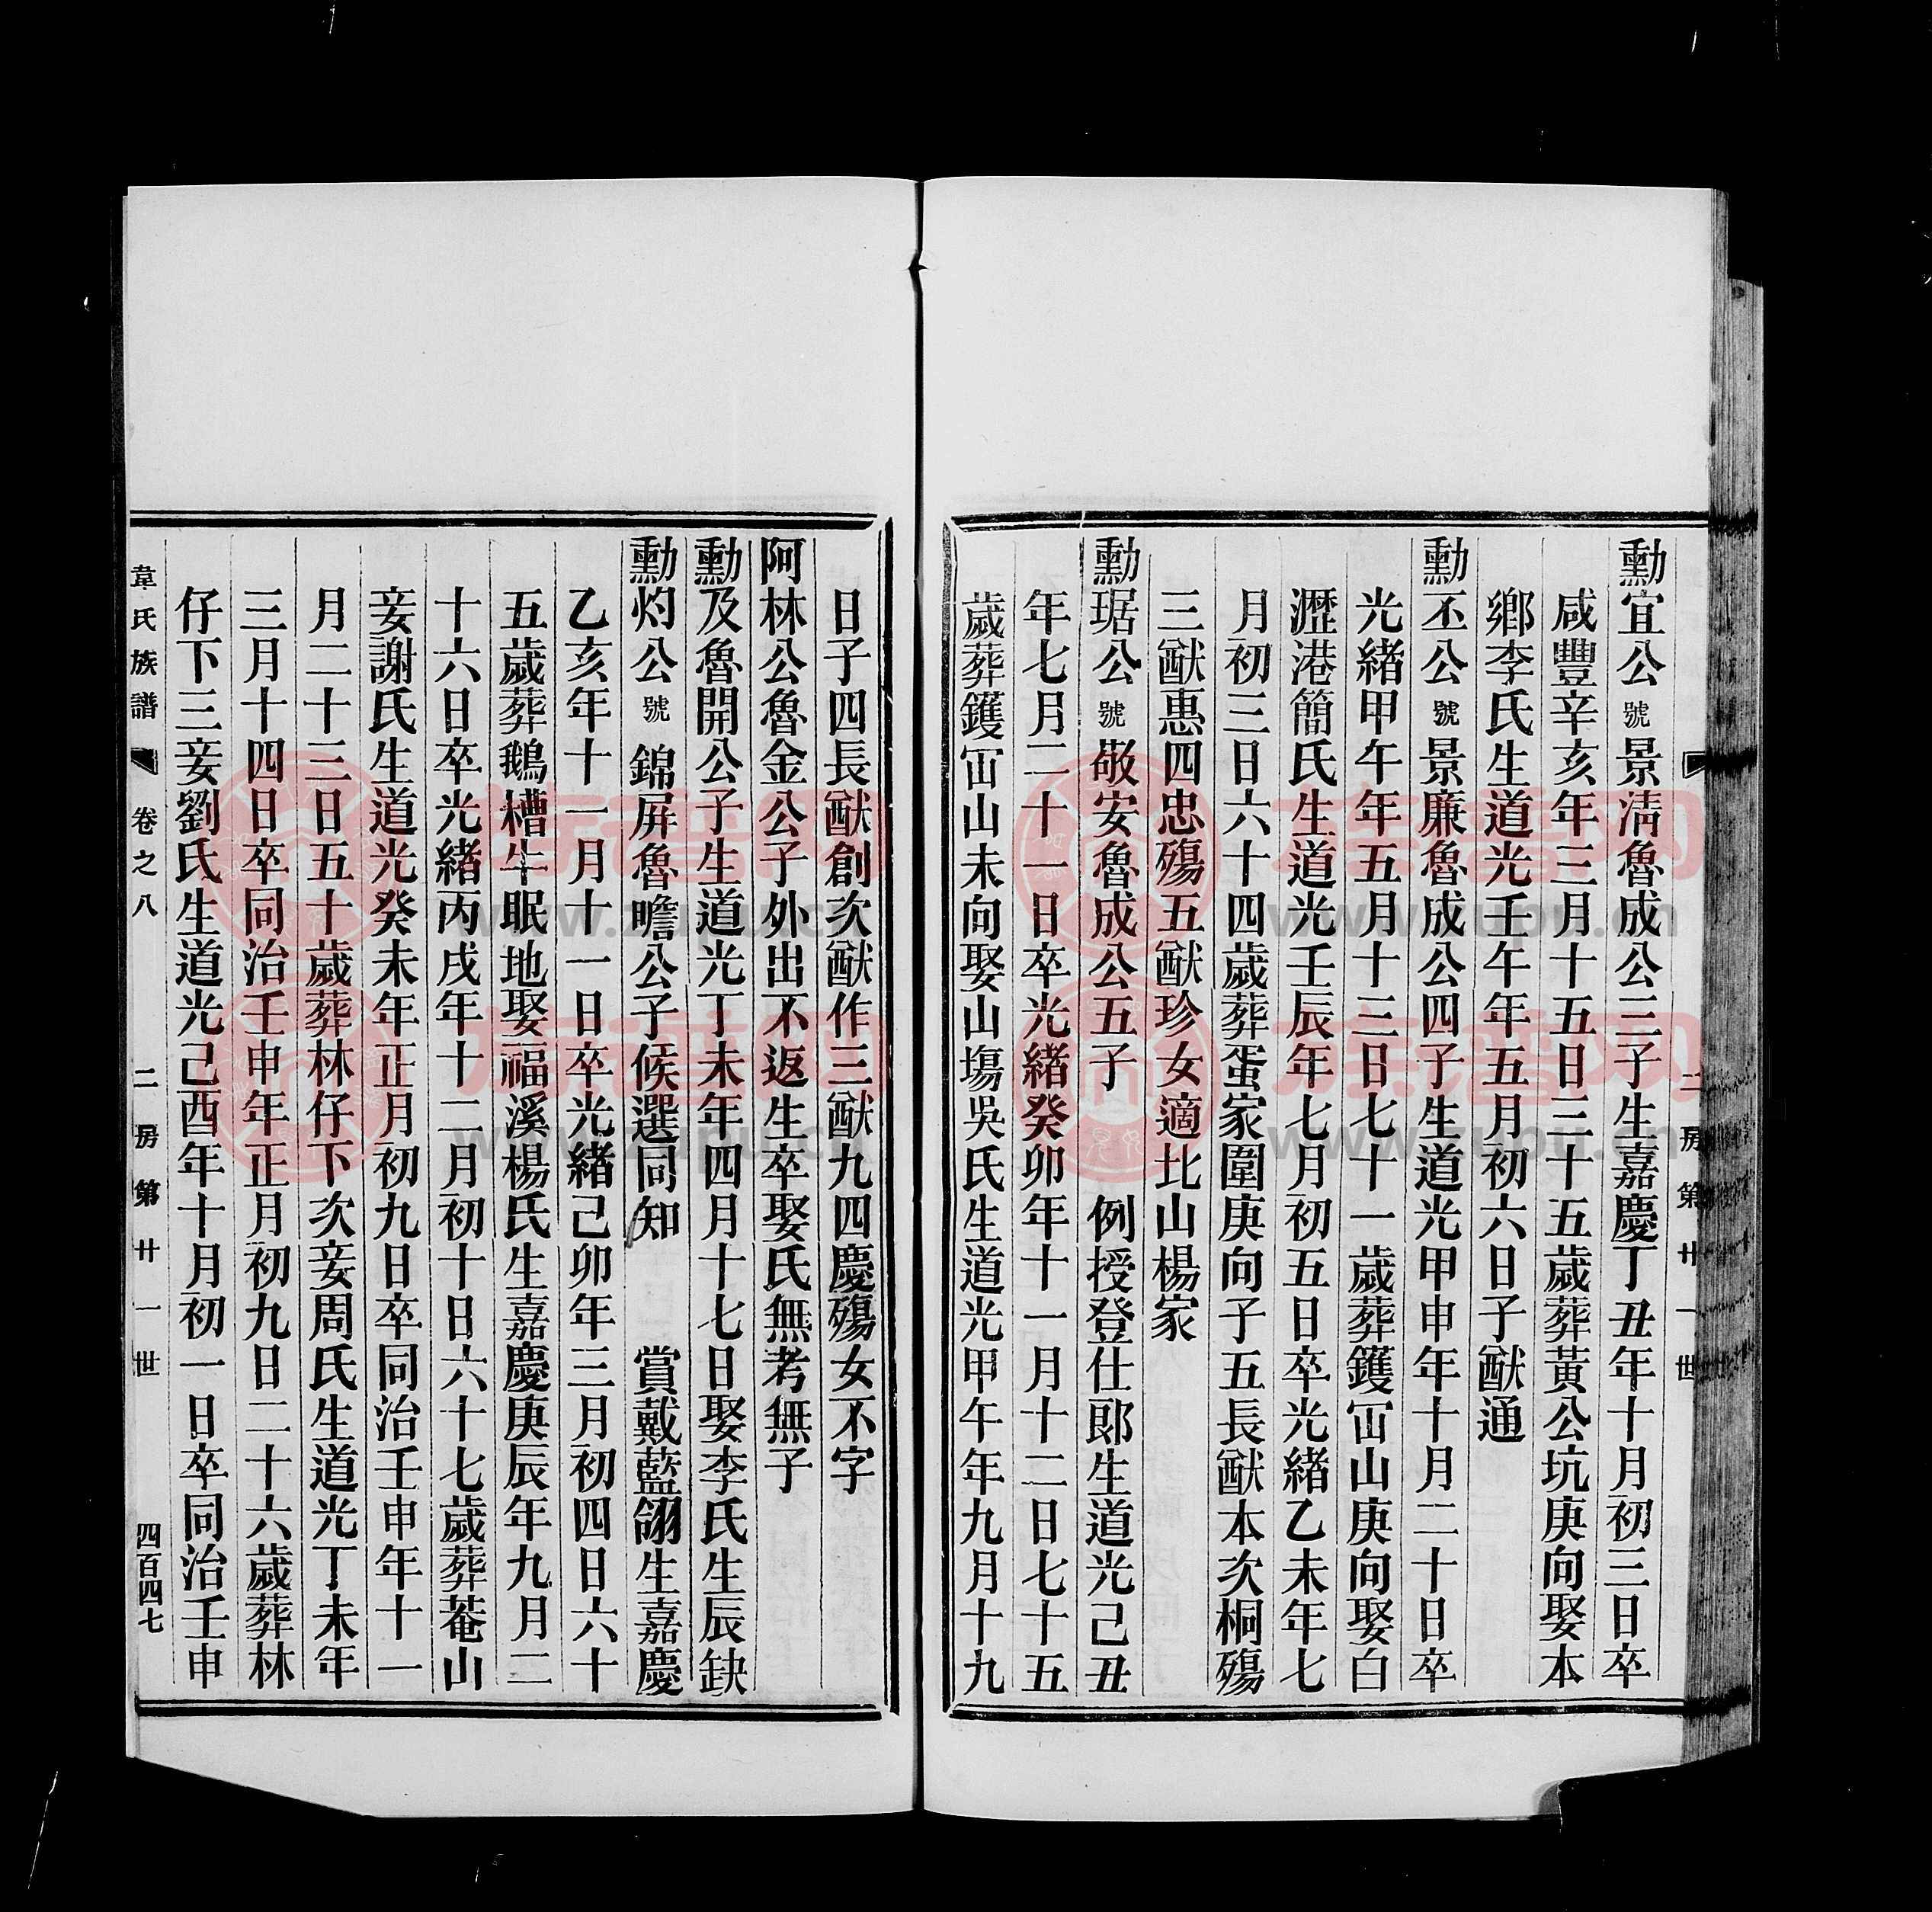 二房第廿一世
勳宜公號景淸魯成公三子生嘉慶丁丑年十月初三日卒
咸豐辛亥年三月十五日三十五歲葬黃公坑庚向娶本
鄉李氏生道光壬午年五月初六日子猷通
勳丕公號景廉魯成公四子生道光甲申年十月二十日卒
光緖甲午年五月十三日七十一歲葬鑊冚山庚向娶白
瀝港簡氏生道光壬辰年七月初五日卒光緖乙未年七
月初三日六十四歲葬蛋家圍庚向子五長猷本次桐殤
三猷惠四忠殤五猷珍女適北山楊家
勳琚公號敬安魯成公五子 例授登仕郞生道光己丑
年七月二十一日卒光緖癸卯年十一月十二日七十五
歲葬鑊冚山未向娶山塲吳氏生道光甲午年九月十九
日子四長猷創次猷作三猷九四慶殤女不字
阿林公魯金公子外出不返生卒娶氏無考無子
勳及魯開公子生道光丁未年四月十七日娶李氏生辰缺
勳灼公號錦屏魯瞻公子候選同知 賞戴藍翎生嘉慶
乙亥年十一月十一日卒光緖己卯年三月初四日六十
五歲葬鵝槽牛眠地娶福溪楊氏生嘉慶庚辰年九月二
十六日卒光緖丙戌年十二月初十日六十七歲葬菴山
妾謝氏生道光癸未年正月初九日卒同治壬申年十一
月二十三日五十歲葬林仔下次妾周氏生道光丁未年
三月十四日卒同治壬申年正月初九日二十六歲葬林
仔下三妾劉氏生道光己酉年十月初一日卒同治壬申
韋氏族譜 卷之八 二房第廿一世 四百四七
族譜网
www.zupu.cn
族譜网
www.zupu.cn
族譜网
www.zupu.cn
族譜网
www.zupu.cn